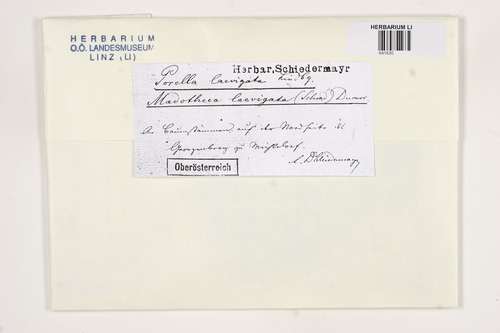 HERBARIUM
O.Ö. LANDESMUSEUM
LINZ (LI)
HERBARIUM LI
641630
Herbar, Schiedermayr
Porella laevigata Lindbg.
Madotheca laevigata (Schrad.) Dumort.
An Baumstämmen, auf der Nordseite des
Georgenberg zu Micheldorf.
C. Schiedermayr
Oberösterreich